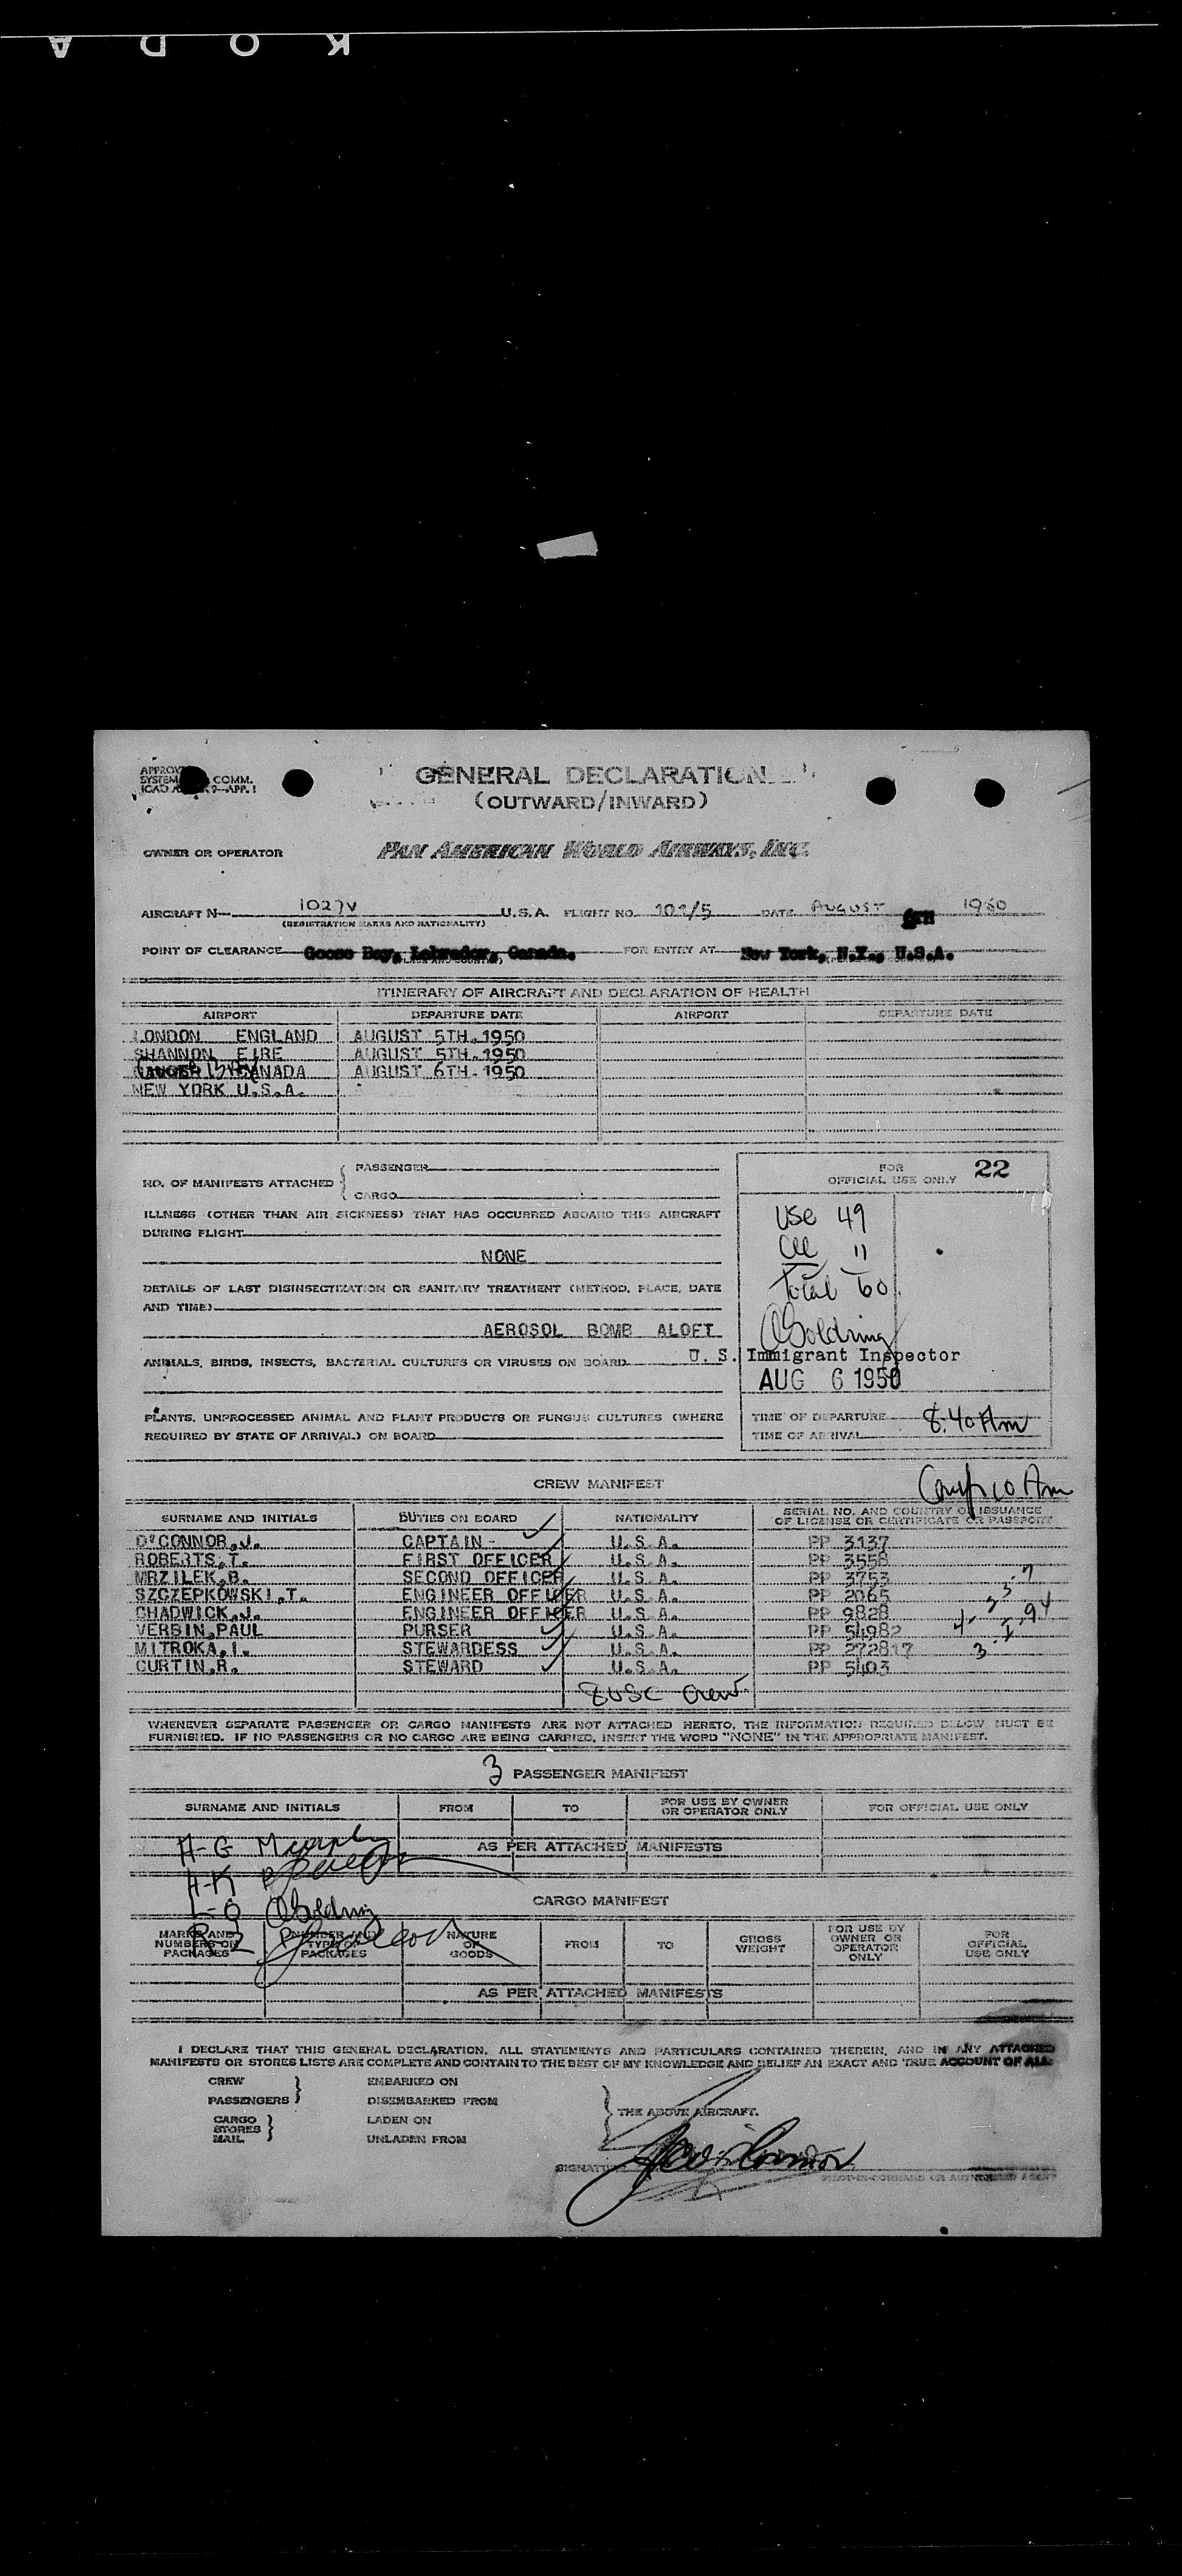 KODA
GENERAL DECLARATION
(OUTWARD/INWARD)
COMM.
OWNER OR OPERATOR PAN AMERICAN WORLD AIRWAYS, INC.
AIRCRAFT N— 1027V U.S.A. FLIGHT NO. 101/5 DATE AUGUST 6TH 1950
(REGISTRATION MARKS AND NATIONALITY)
POINT OF CLEARANCE Goose Bay, Labrador, Canada. FOR ENTRY AT New York, N.Y., U.S.A.
ITINERARY OF AIRCRAFT AND DECLARATION OF HEALTH
AIRPORT DEPARTURE DATE AIRPORT DEPARTURE DATE
LONDON ENGLAND AUGUST 5TH.1950
SHANNON EIRE AUGUST 5TH.1950
CANADA AUGUST 6TH.1950
NEW YORK U.S.A.
NO. OF MANIFESTS ATTACHED { PASSENGER
CARGO
ILLNESS (OTHER THAN AIR SICKNESS) THAT HAS OCCURRED ABOARD THIS AIRCRAFT
DURING FLIGHT
NONE
DETAILS OF LAST DISINSECTIZATION OR SANITARY TREATMENT (METHOD, PLACE, DATE
AND TIME)
AEROSOL BOMB ALOFT
ANIMALS, BIRDS, INSECTS, BACTERIAL CULTURES OR VIRUSES ON BOARD
PLANTS, UNPROCESSED ANIMAL AND PLANT PRODUCTS OR FUNGUS CULTURES (WHERE
REQUIRED BY STATE OF ARRIVAL) ON BOARD
FOR
OFFICIAL USE ONLY 22
USC 49
11
Total 60
Goldring
U. S. Immigrant Inspector
AUG 6 1950
TIME OF DEPARTURE 8:40 Am
TIME OF ARRIVAL
10 Am
CREW MANIFEST
SURNAME AND INITIALS DUTIES ON BOARD NATIONALITY SERIAL NO. AND COUNTRY OF ISSUANCE
OF LICENSE OR CERTIFICATE OR PASSPORT
O'CONNOR,J. CAPTAIN- U.S.A. PP 3137
ROBERTS,T. FIRST OFFICER U.S.A. PP 3558
MRZILEK,B. SECOND OFFICER U.S.A. PP 3753
SZCZEPKOWSKI,T. ENGINEER OFFICER U.S.A. PP 2065
CHADWICK,J. ENGINEER OFFICER U.S.A. PP 9828
VERBIN,PAUL PURSER U.S.A. PP 54982
MITROKA,I. STEWARDESS U.S.A. PP 272817
CURTIN,R. STEWARD U.S.A. PP 5403
8 USC Crew
WHENEVER SEPARATE PASSENGER OR CARGO MANIFESTS ARE NOT ATTACHED HERETO, THE INFORMATION REQUIRED BELOW MUST BE
FURNISHED. IF NO PASSENGERS OR NO CARGO ARE BEING CARRIED, INSERT THE WORD "NONE" IN THE APPROPRIATE MANIFEST.
3 PASSENGER MANIFEST
SURNAME AND INITIALS FROM TO FOR USE BY OWNER
OR OPERATOR ONLY FOR OFFICIAL USE ONLY
A-G Murphy
AS PER ATTACHED MANIFESTS
H-K
CARGO MANIFEST
L-O Goldring
R-Z
MARKS AND
NUMBERS ON
PACKAGES NUMBER AND
TYPE OF
PACKAGES NATURE
OF
GOODS FROM TO GROSS
WEIGHT FOR USE BY
OWNER OR
OPERATOR
ONLY FOR
OFFICIAL
USE ONLY
AS PER ATTACHED MANIFESTS
I DECLARE THAT THIS GENERAL DECLARATION, ALL STATEMENTS AND PARTICULARS CONTAINED THEREIN, AND IN ANY ATTACHED
MANIFESTS OR STORES LISTS ARE COMPLETE AND CONTAIN TO THE BEST OF MY KNOWLEDGE AND BELIEF AN EXACT AND TRUE ACCOUNT OF ALL:
CREW
PASSENGERS } EMBARKED ON
DISEMBARKED FROM
CARGO
STORES
MAIL } LADEN ON
UNLADEN FROM
} THE ABOVE AIRCRAFT.
SIGNATURE
PILOT-IN-COMMAND OR AUTHORIZED AGENT